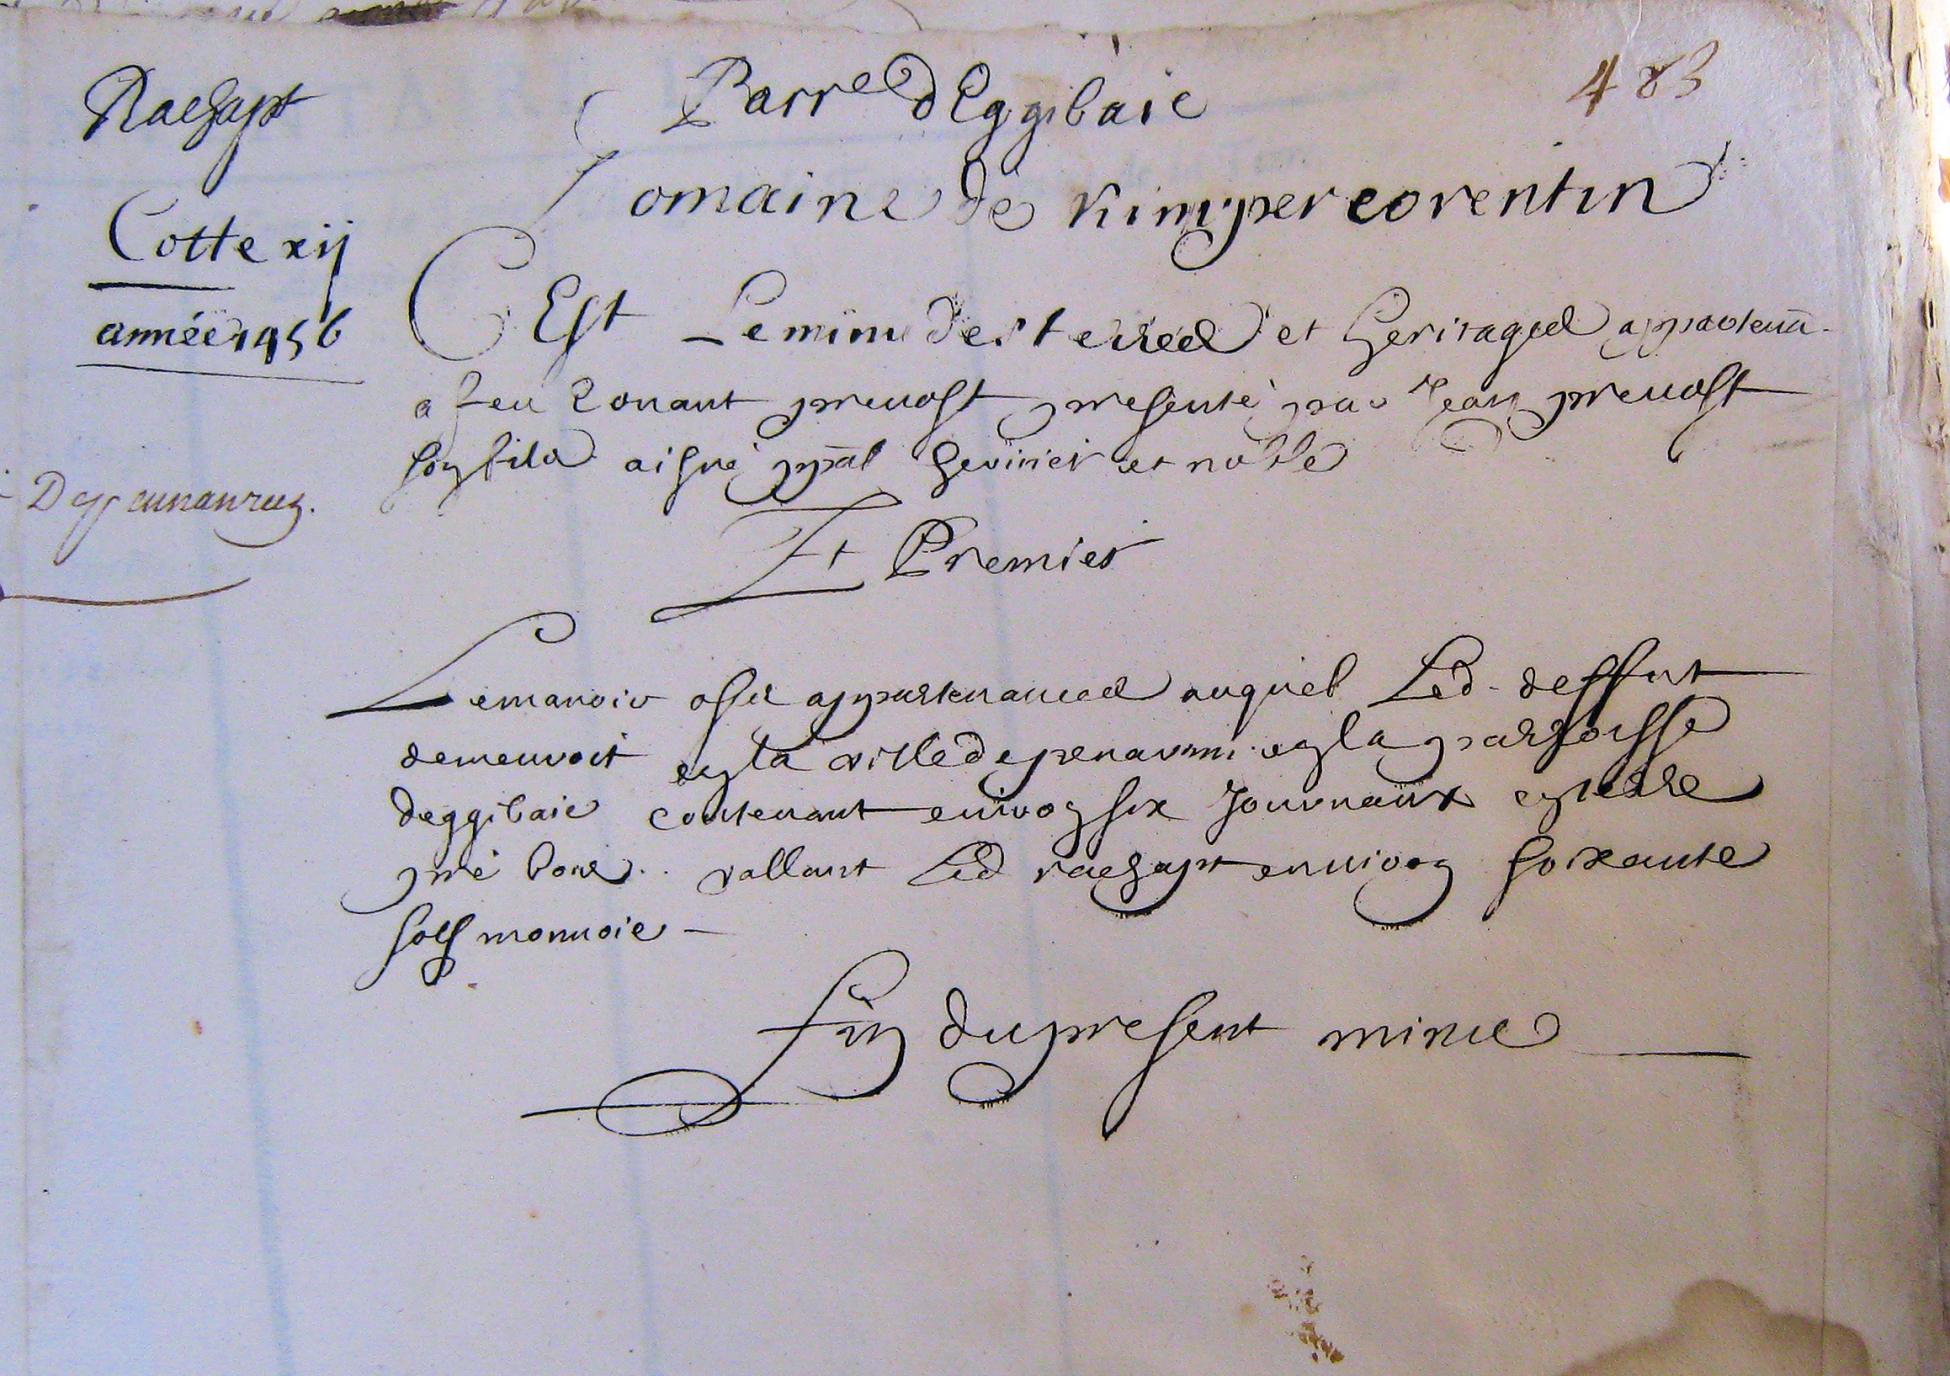 Rachapt
Parr^e d'Eggibaie
483
Domaine de Kimpercorentin
Cotte xij
année 1456
C Est Le minu des terres et heritages appartenã
a feu Ronant preuost presenté par Jean preuost
son filz aisné ppal herittier et noble
Depenanrun.
Et Premier
Le manoir o ses appartenances auquel Led. deffunt
demeuroit en la ville de penanrun en la parroisse
deggibaie contenant enuiron six Journaux en terre
pré bois.. vallant Led rachapt enuiron soixante
sols monnoie -
fin du present minu